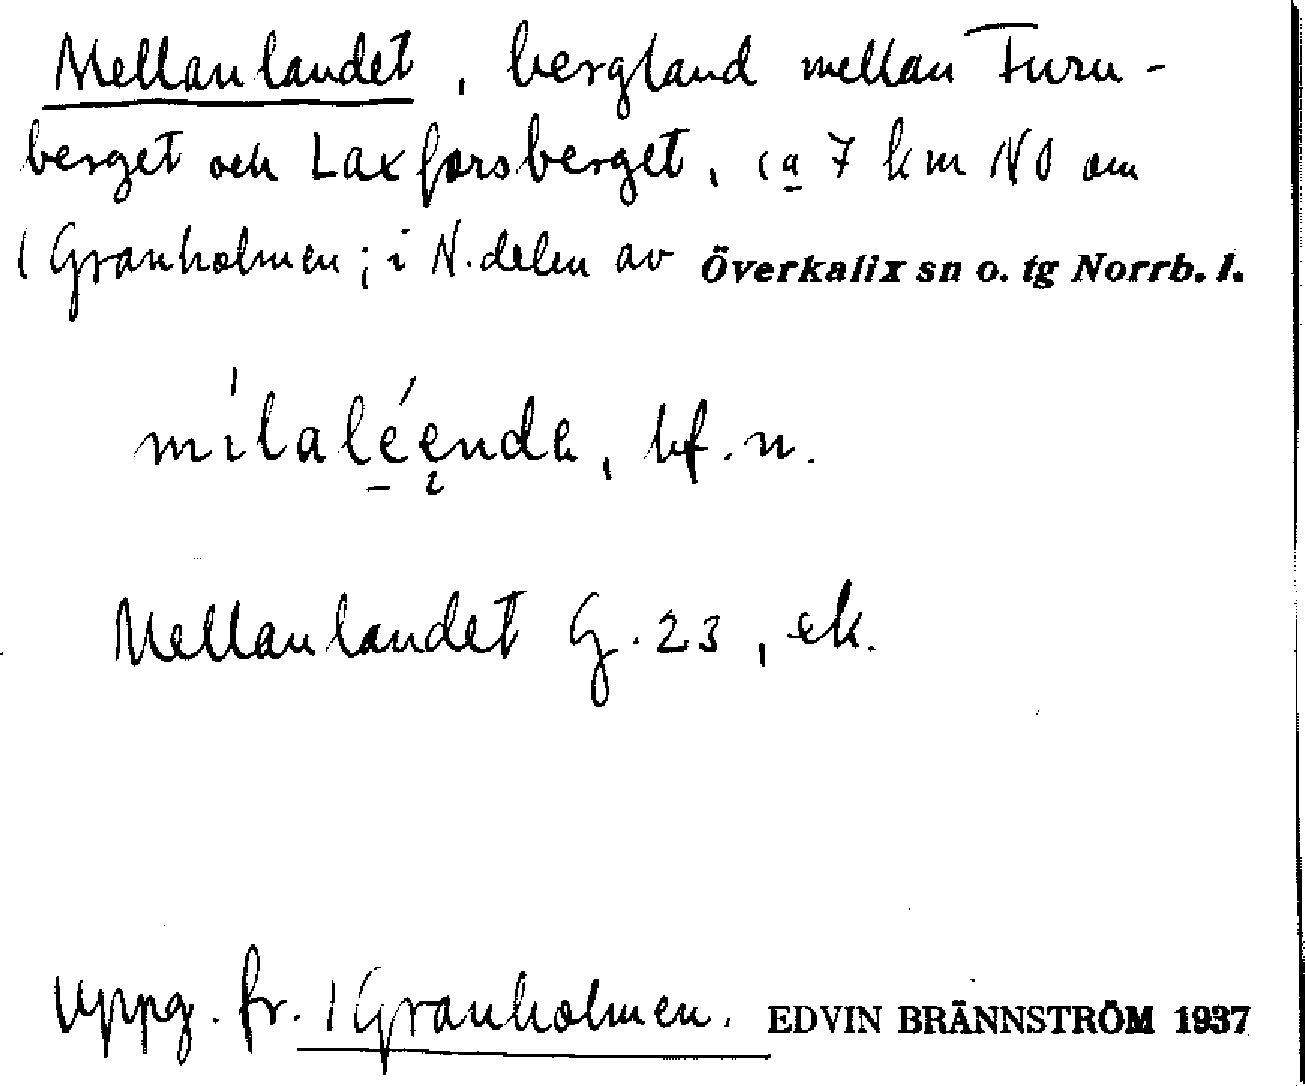 Mellanlandet, bergland mellan Furu-
berget och Laxforsberget, ca 7 km NO om
Granholmen; i N. delen av Överkalix sn o. tg Norrb. l.
bf. n.
Mellanlandet G. 23, ek.
Uppg. fr. Granholmen. EDVIN BRÄNNSTRÖM 1937